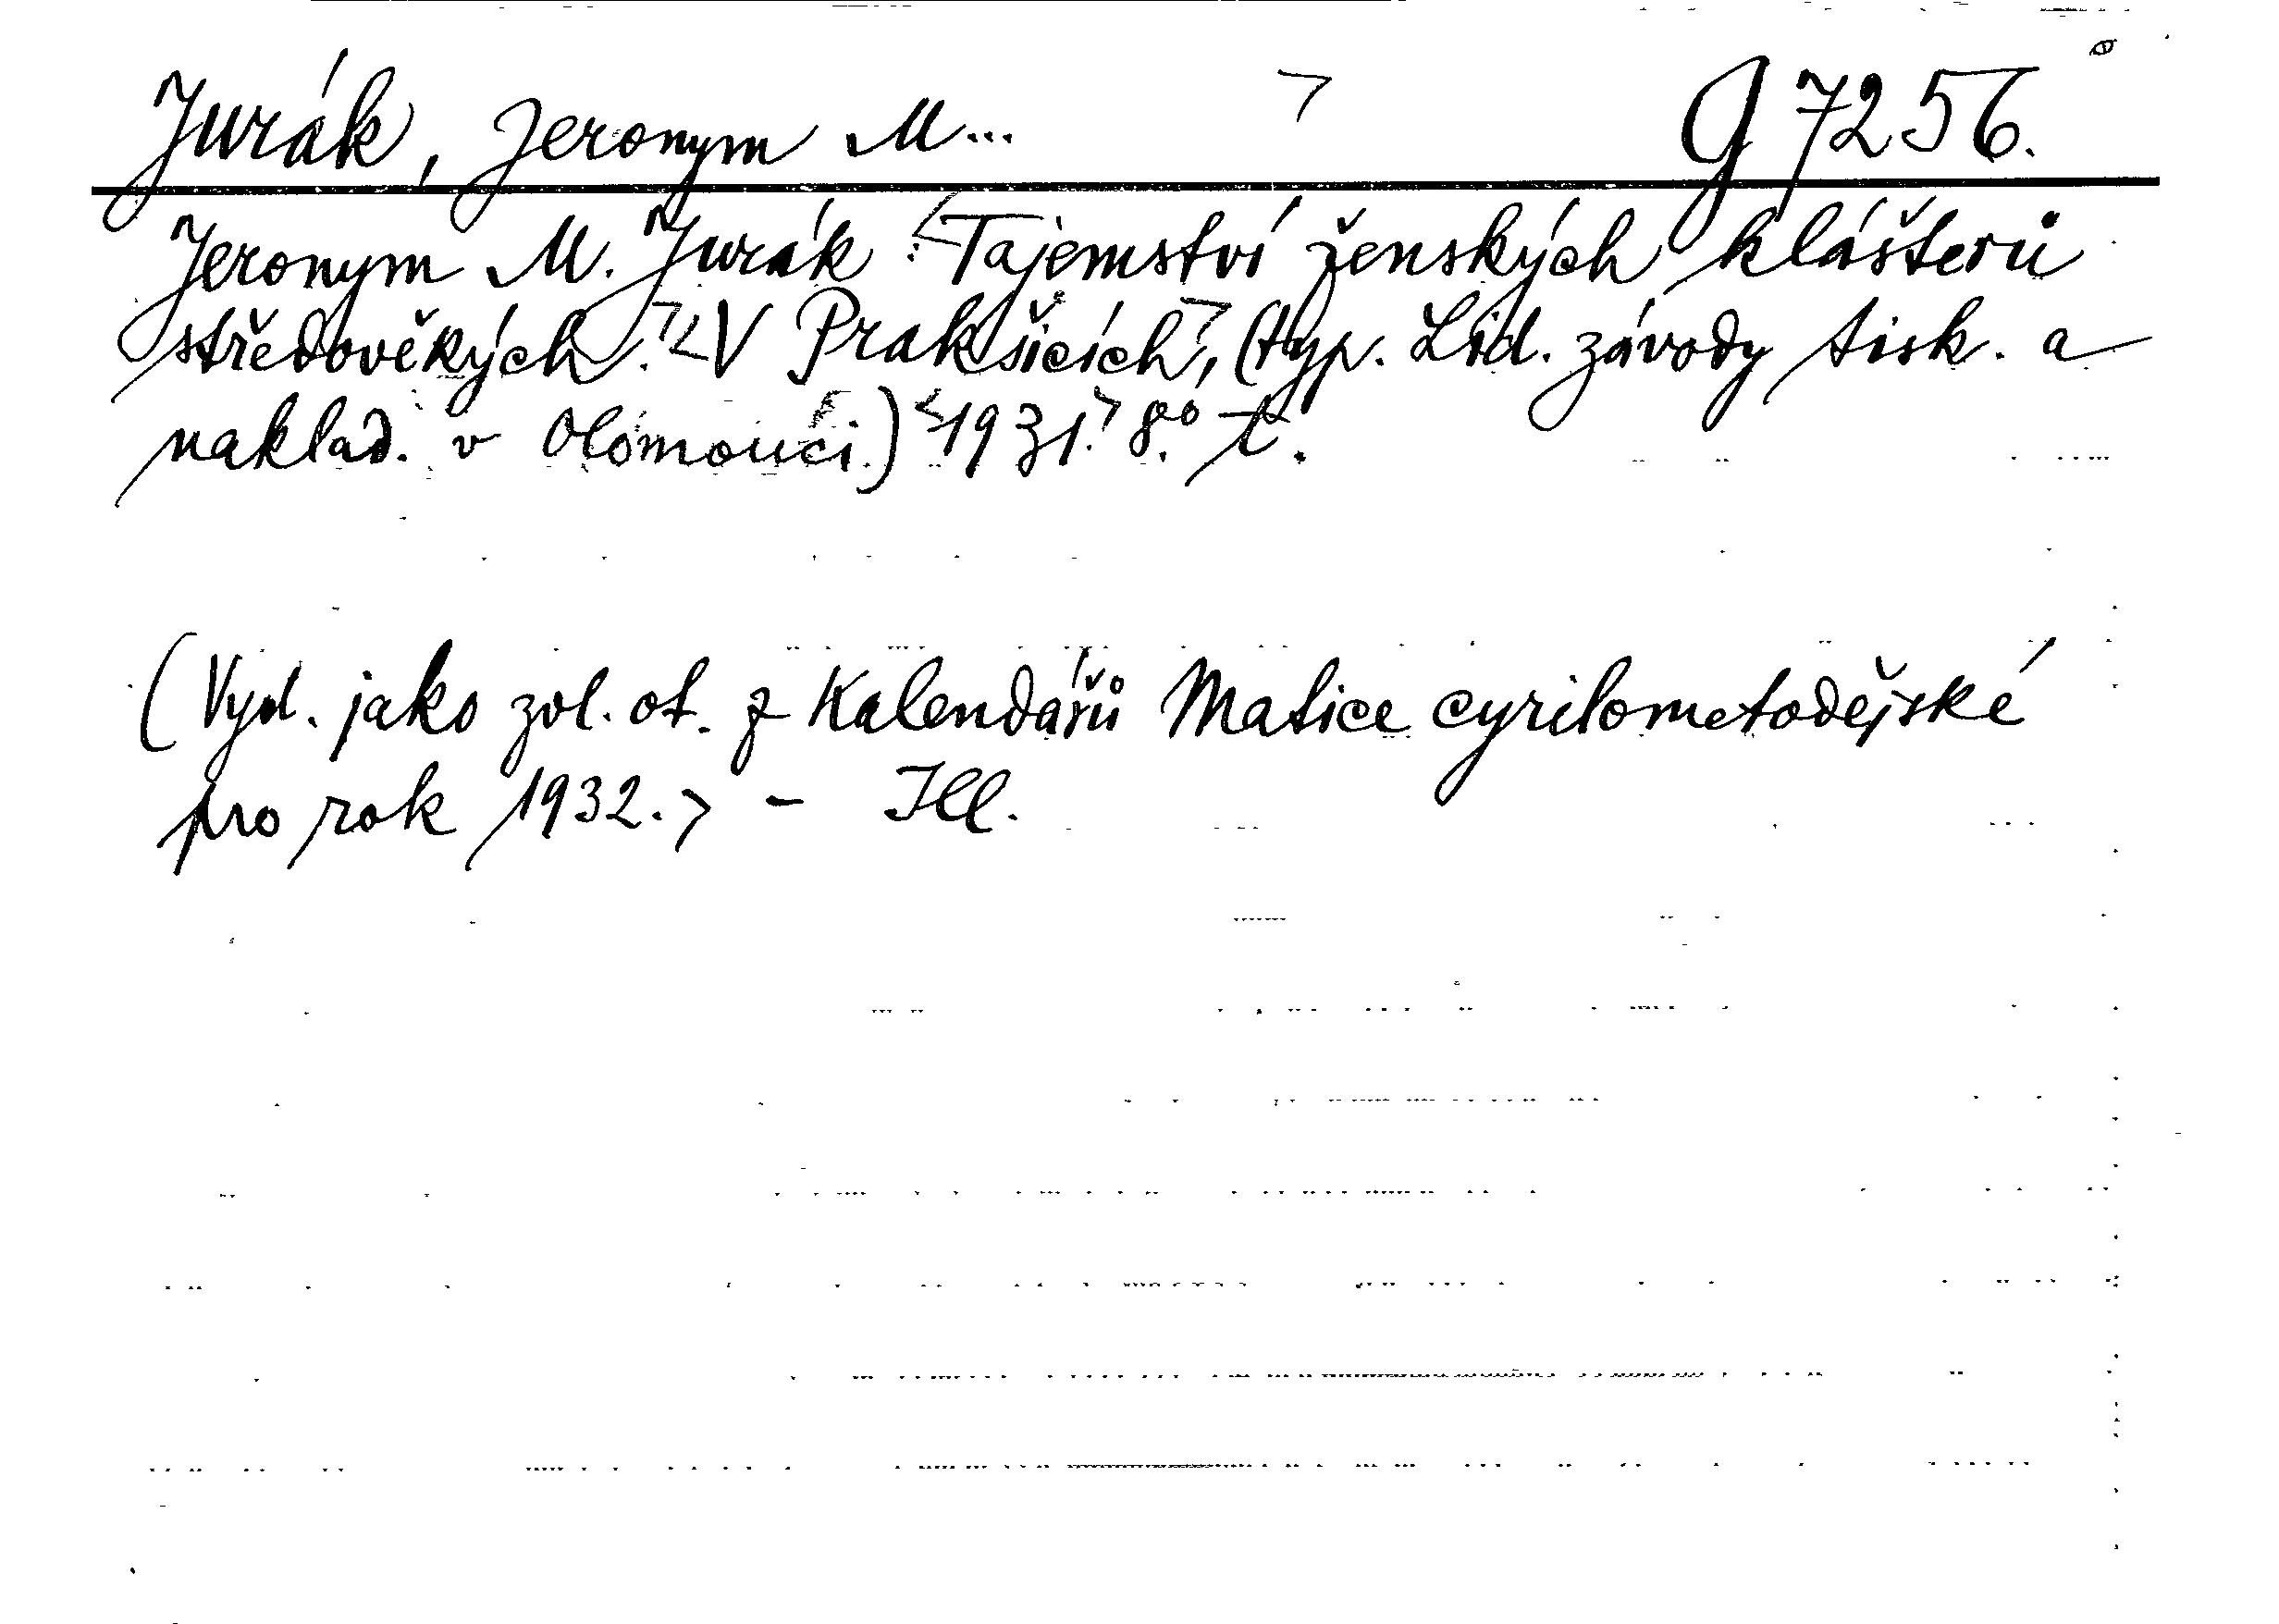 Jurák, Jeronym M... G 7256.
Jeronym M. Jurák: Tajemství ženských klášterů
středověkých. V Prakšicích, (typ. Lid. závody tisk. a
naklad. v Olomouci.) 1931. 8°. t.
(Vyd. jako zvl. ot. z Kalendářů Matice cyrilometodějské
pro rok 1932. > - Ill.